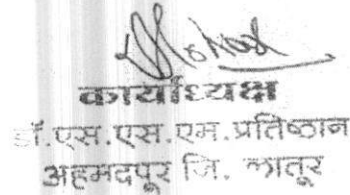 कार्याध्यक्ष
डॉ.एस.एस.एम.प्रतिष्ठान
अहमदपूर जि. लातूर